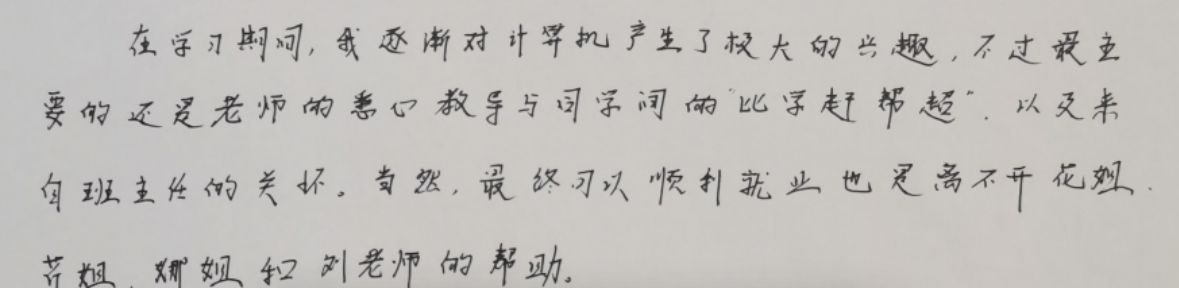 在学习期间,我逐渐对计算机产生了极大的兴趣,不过最主
要的还是老师的悉心教导与同学间的“比学赶帮超”、以及来
自班主任的关怀。当然,最终可以顺利就业也是离不开花姐、
芹姐、娜姐和刘老师的帮助。